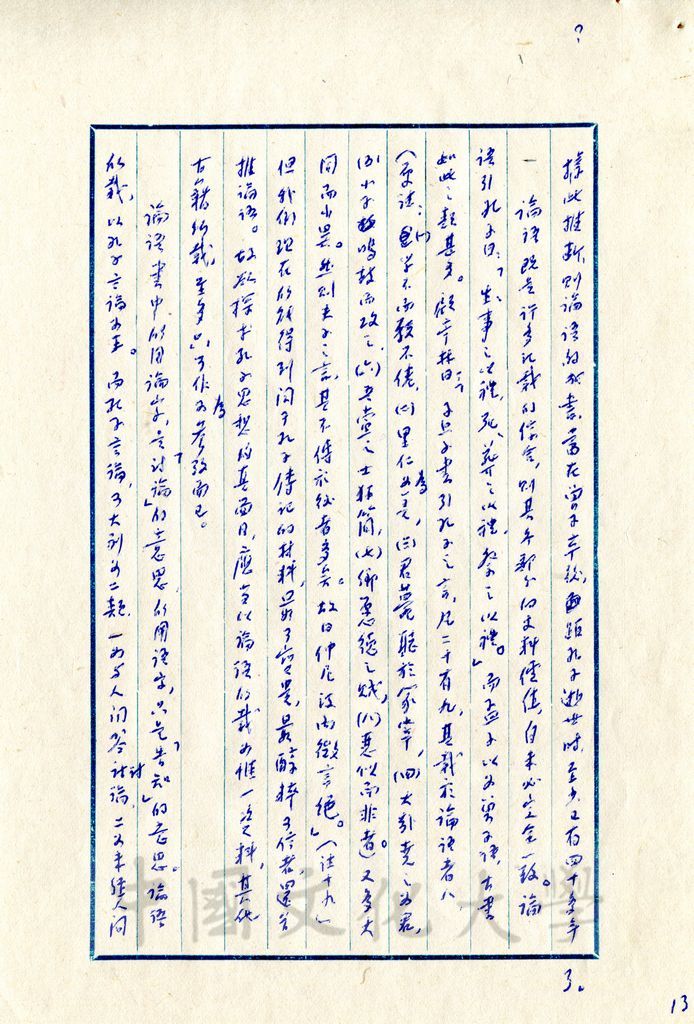 ?
據此推斷,則論語的成書,當在曾子卒後,距孔子逝世時,至少又有四十多年
了。
一 論語既是許多記載的綜合,則其各部分的史料價值,自未必完全一致。論
語引孔子曰:「生,事之以禮,死,葬之以禮,祭之以禮。」而孟子以為曾子語,古書
如此之類甚多。顧亭林曰:「孟子書引孔子之言,凡二十有九,其載於論語者八
(原注:(一)學不厭教不倦,(二)里仁為美,(三)君薨聽於冢宰,(四)大哉堯之為君,
(五)小子鳴鼓而攻之,(六)吾黨之士狂簡,(七)鄉愿德之賊,(八)惡似而非者)又多大
同而小異。然則夫子之言,其不傳於後者多矣。故曰仲尼沒而微言絕。」(注十九)
但我們現在的能得到關于孔子傳記的材料,最可寶貴,最醇粹可信者,還當
推論語。故欲探求孔子思想的真面目,應當以論語的載為惟一史料,其他
古籍所載,至多只可作為參攷而已。
論語書中的用論字,是「討論」的意思的用語字,只是「告知」的意思。論語
的載,以孔子言論為主。而孔子言論,可大別為二類,一為與人問答討論,二為未經人問
13
中國文化大學